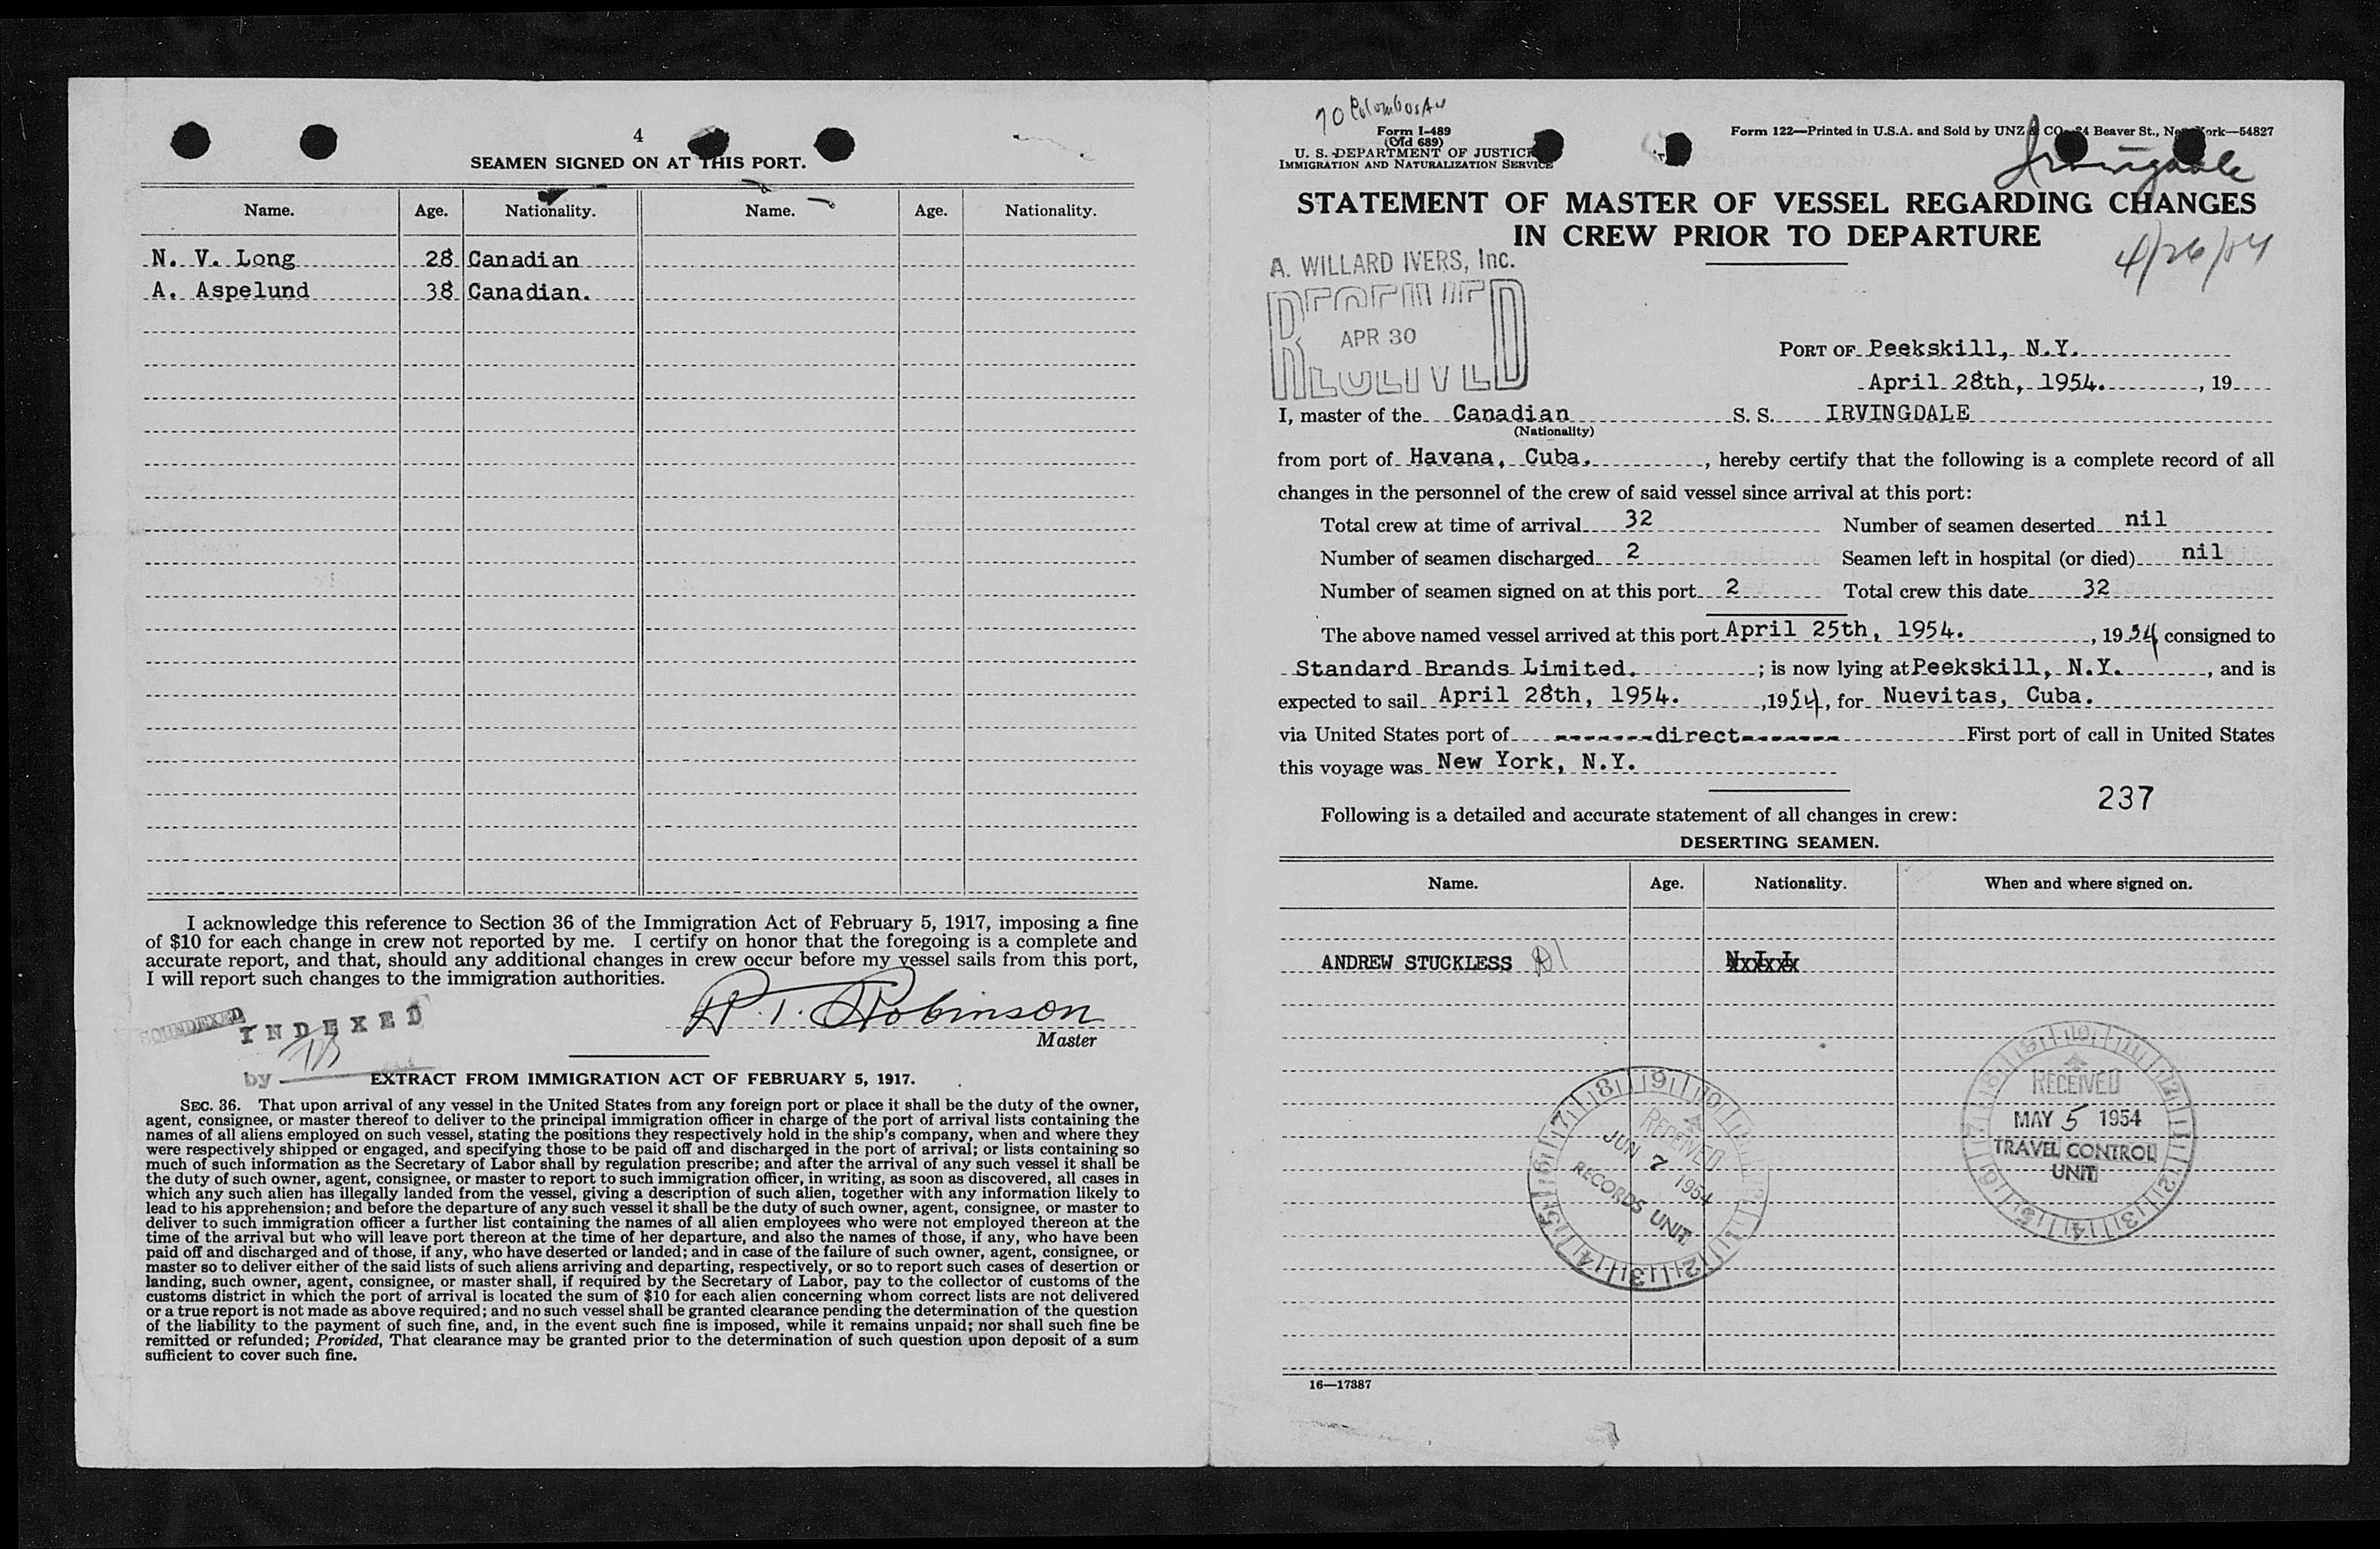 4
SEAMEN SIGNED ON AT THIS PORT.
Name. Age. Nationality. Name. Age. Nationality.
N. V. Long 28 Canadian
A. Aspelund 38 Canadian.
I acknowledge this reference to Section 36 of the Immigration Act of February 5, 1917, imposing a fine
of $10 for each change in crew not reported by me. I certify on honor that the foregoing is a complete and
accurate report, and that, should any additional changes in crew occur before my vessel sails from this port,
I will report such changes to the immigration authorities.
SOUNDEXED
INDEXED
by
R. T. Robinson
Master
EXTRACT FROM IMMIGRATION ACT OF FEBRUARY 5, 1917.
SEC. 36. That upon arrival of any vessel in the United States from any foreign port or place it shall be the duty of the owner,
agent, consignee, or master thereof to deliver to the principal immigration officer in charge of the port of arrival lists containing the
names of all aliens employed on such vessel, stating the positions they respectively hold in the ship's company, when and where they
were respectively shipped or engaged, and specifying those to be paid off and discharged in the port of arrival; or lists containing so
much of such information as the Secretary of Labor shall by regulation prescribe; and after the arrival of any such vessel it shall be
the duty of such owner, agent, consignee, or master to report to such immigration officer, in writing, as soon as discovered, all cases in
which any such alien has illegally landed from the vessel, giving a description of such alien, together with any information likely to
lead to his apprehension; and before the departure of any such vessel it shall be the duty of such owner, agent, consignee, or master to
deliver to such immigration officer a further list containing the names of all alien employees who were not employed thereon at the
time of the arrival but who will leave port thereon at the time of her departure, and also the names of those, if any, who have been
paid off and discharged and of those, if any, who have deserted or landed; and in case of the failure of such owner, agent, consignee, or
master so to deliver either of the said lists of such aliens arriving and departing, respectively, or so to report such cases of desertion or
landing, such owner, agent, consignee, or master shall, if required by the Secretary of Labor, pay to the collector of customs of the
customs district in which the port of arrival is located the sum of $10 for each alien concerning whom correct lists are not delivered
or a true report is not made as above required; and no such vessel shall be granted clearance pending the determination of the question
of the liability to the payment of such fine, and, in the event such fine is imposed, while it remains unpaid; nor shall such fine be
remitted or refunded; Provided, That clearance may be granted prior to the determination of such question upon deposit of a sum
sufficient to cover such fine.
70 Columbus Av
Form I-489
(Old 689)
U. S. DEPARTMENT OF JUSTICE
IMMIGRATION AND NATURALIZATION SERVICE
Form 122—Printed in U.S.A. and Sold by UNZ & CO., 24 Beaver St., New York—54827
Irvingdale
STATEMENT OF MASTER OF VESSEL REGARDING CHANGES
IN CREW PRIOR TO DEPARTURE
4/26/54
A. WILLARD IVERS, Inc.
APR 30
RECEIVED
PORT OF Peekskill, N.Y.
April 28th, 1954. , 19
I, master of the Canadian S. S. IRVINGDALE
(Nationality)
from port of Havana, Cuba. , hereby certify that the following is a complete record of all
changes in the personnel of the crew of said vessel since arrival at this port:
Total crew at time of arrival 32 Number of seamen deserted nil
Number of seamen discharged 2 Seamen left in hospital (or died) nil
Number of seamen signed on at this port 2 Total crew this date 32
The above named vessel arrived at this port April 25th, 1954. , 1954 consigned to
Standard Brands Limited. ; is now lying at Peekskill, N.Y. , and is
expected to sail April 28th, 1954. ,1954, for Nuevitas, Cuba.
via United States port of -------direct------- First port of call in United States
this voyage was New York, N.Y.
237
Following is a detailed and accurate statement of all changes in crew:
DESERTING SEAMEN.
Name. Age. Nationality. When and where signed on.
ANDREW STUCKLESS
RECEIVED
JUN 7 1954
RECORDS UNIT
RECEIVED
MAY 5 1954
TRAVEL CONTROL
UNIT
16—17387